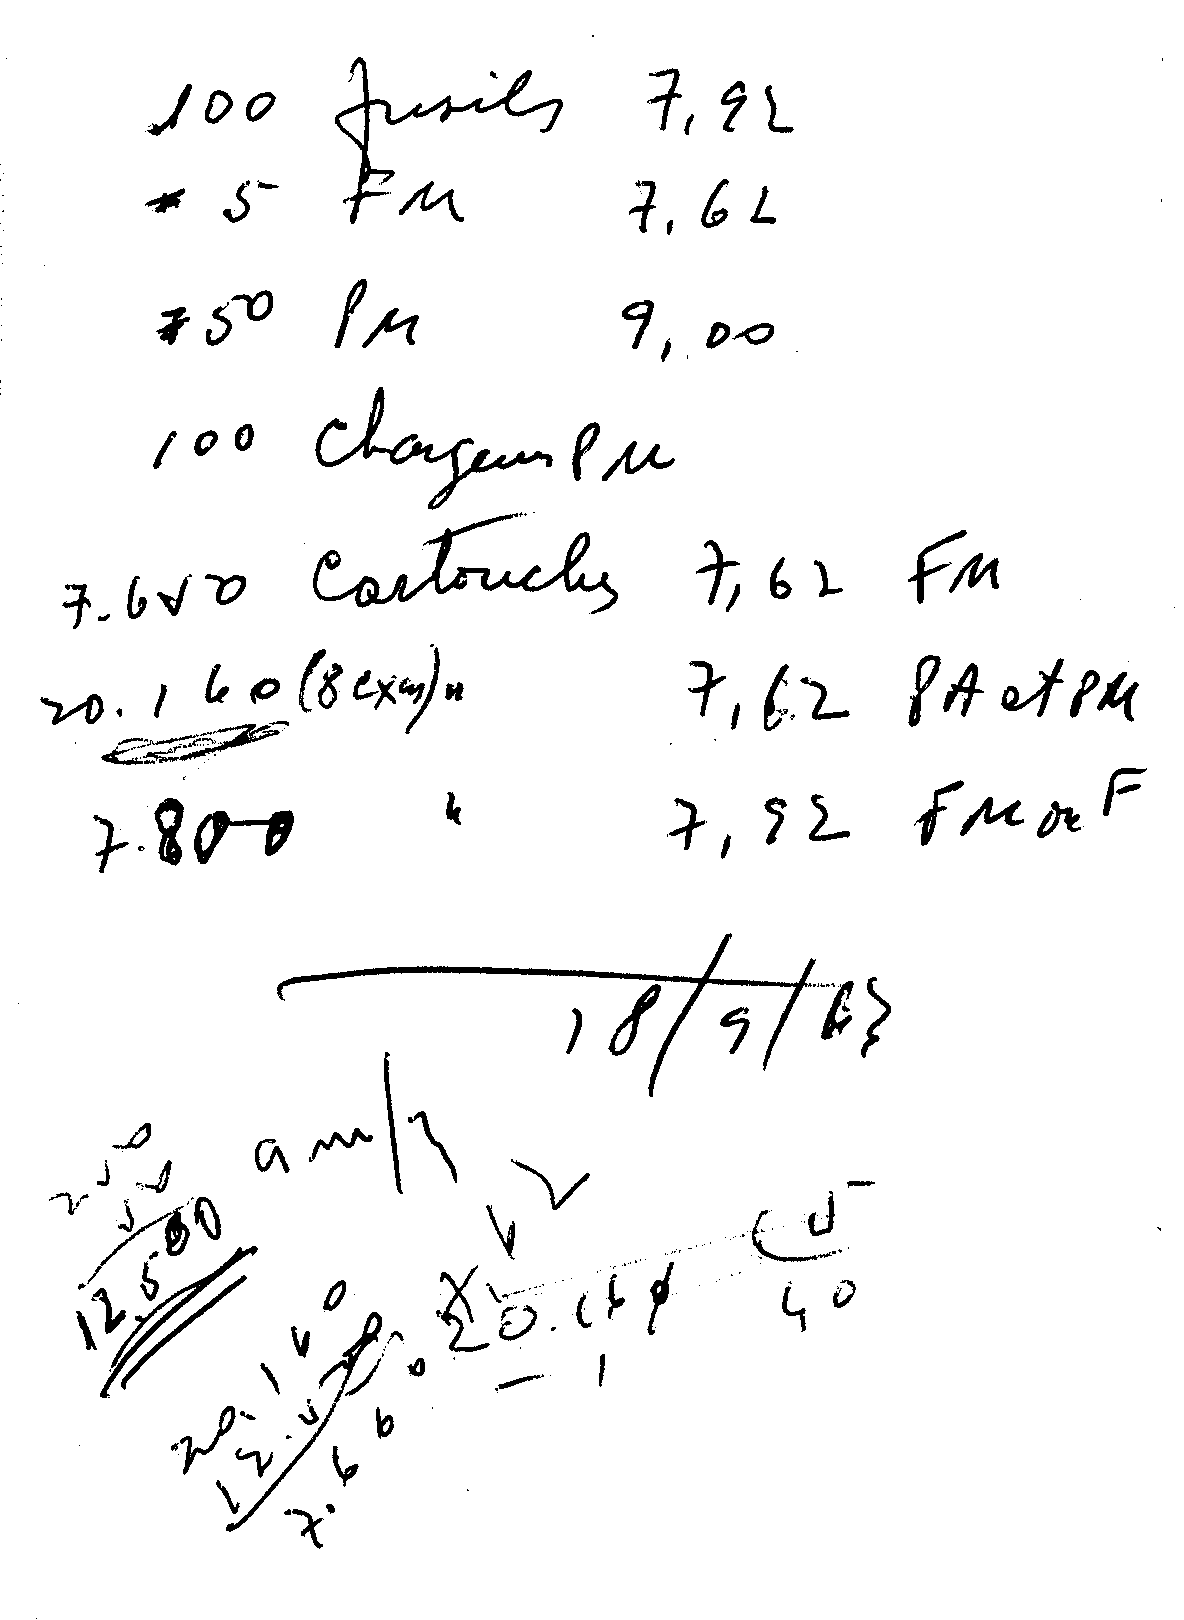 100 fusils 7,92
5 FM 7,62
50 PM 9,00
100 Chargeurs PM
7.650 Cartouches 7,62 FM
20.160 (8 cxes) " 7,62 PA et PM
7.800 " 7,92 FM ou F
18/9/63
250
50
12.500
20.160
40
20.160
12.500
7.660